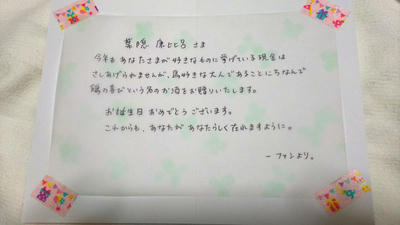 葉隠 康比呂 さま
今年も あなたさまが 好きなものに 挙げている 現金は
さしあげられませんが、鳥好きな大人であることにちなんで
鶴の喜びという名のお酒をお贈りいたします。
お誕生日 おめでとう ございます。
これからも、あなたが あなたらしく 在れますように。
－ファンより。